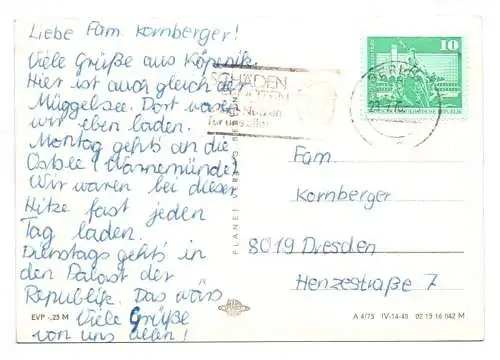 Liebe Fam. Kornberger!
Viele Grüße aus Köpenik.
Hier ist auch gleich der
Müggelsee. Dort waren
wir eben baden.
Montag gehts an die
Ostsee (Warnemünde)
Wir waren bei dieser
Hitze fast jeden
Tag baden.
Dienstags gehts in
den Palast der
Republik. Das wärs
Viele Grüße
von uns allen!
EVP -,25 M
PLANET VERLAG BERLIN
SCHÄDEN
Nutzen
für uns alle
BERLIN
10
Fam
Kornberger
8019 Dresden
Henzestraße 7
A 4/75 IV-14-45 02 13 16 042 M